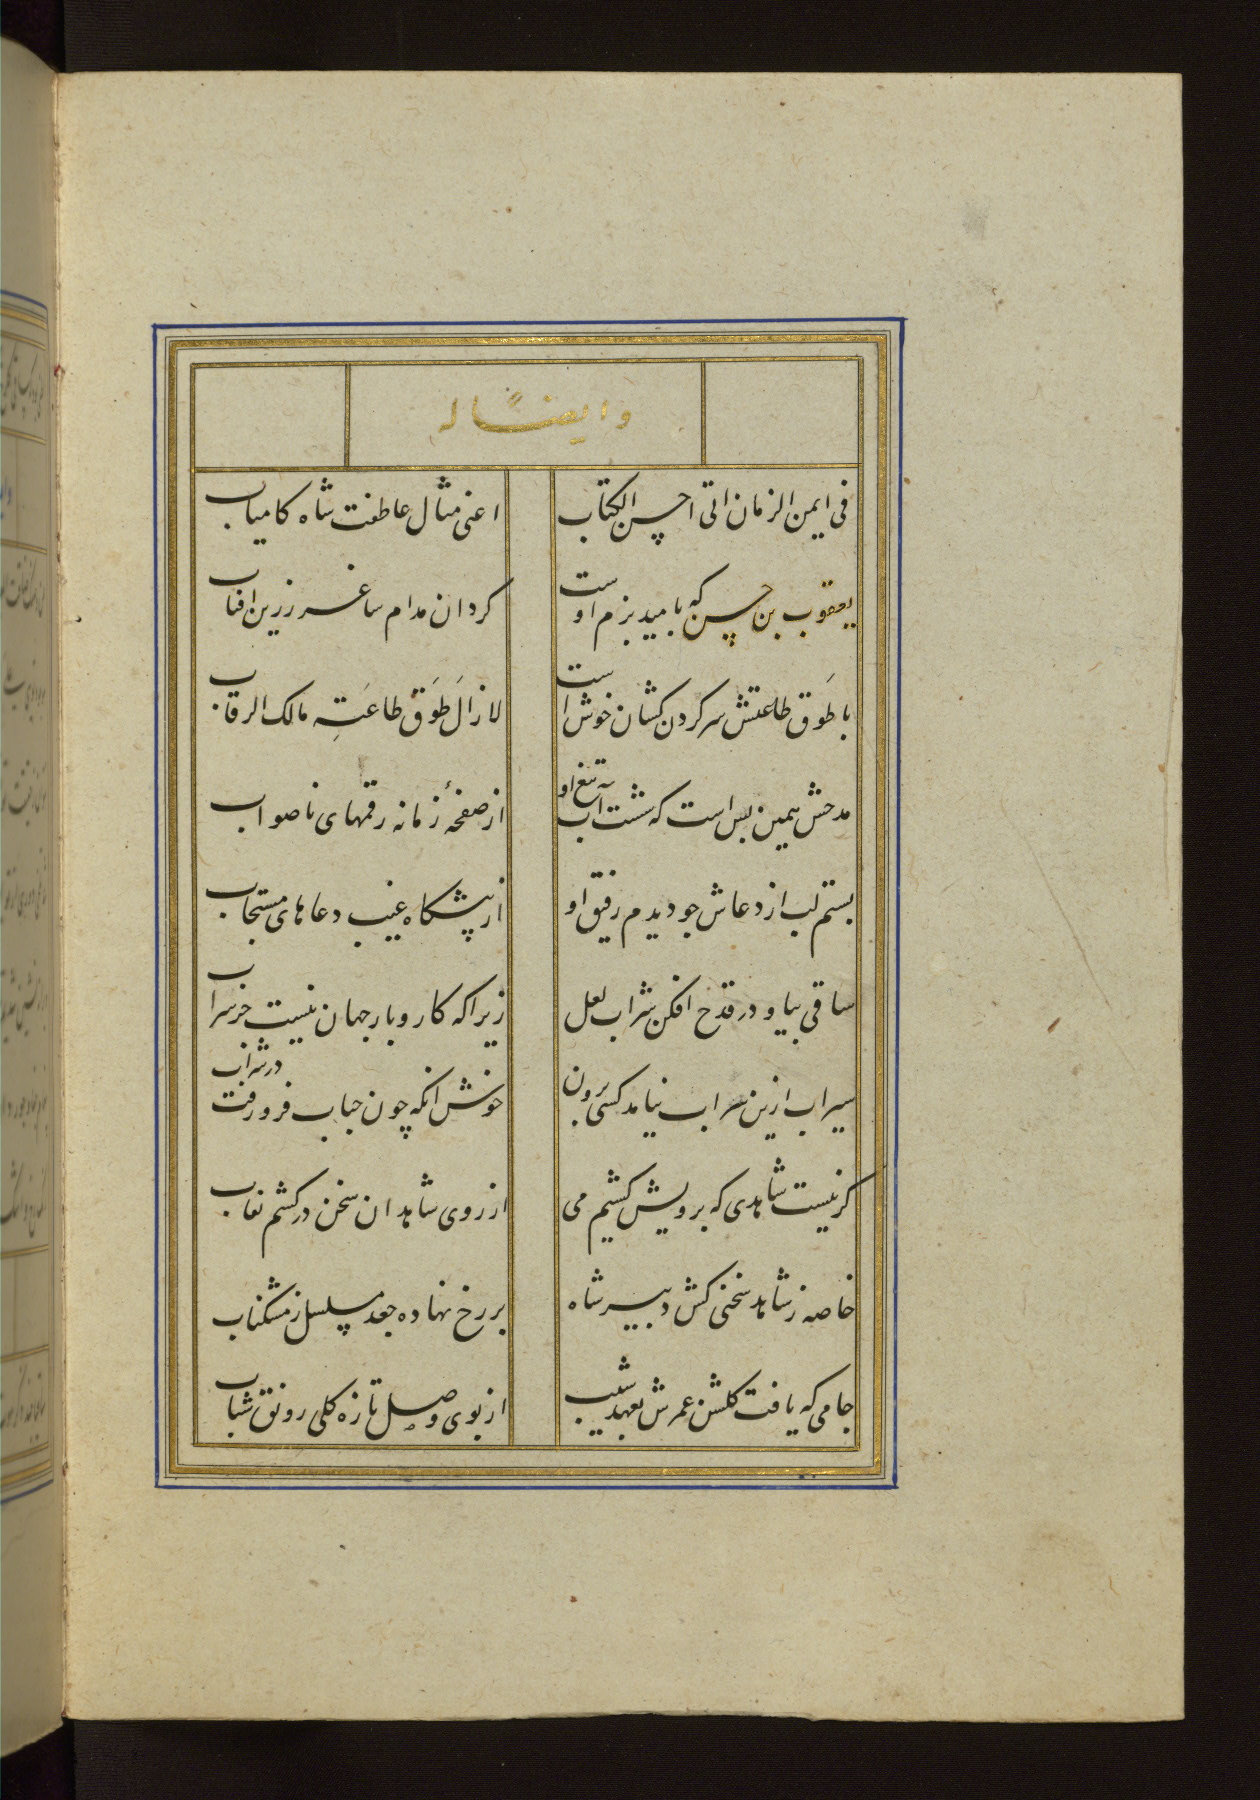 وایضًا له
فی ایمن الزمان اتی احسن الکتاب
اعنی مثال عاطفت شاه کامیاب
یعقوب بن حسن که بامید بزم اوست
کردان مدام ساغر زرین افتاب
با طَوق طاعتش سرکردن کشان خوش است
لا زالَ طَوَق طاعَتِه مالک الرقاب
مدحش همین بس است که شست آب تیغ او
از صفحهٔ زمانه رقمهای ناصواب
بستم لب از دعاش چو دیدم رفیق او
از پیشکاه غیب دعاهای مستجاب
ساقی بیا و در قدح افکن شراب لعل
زیرا که کار و بار جهان نیست جز سراب
سیراب ازین سراب نیامد کسی برون
خوش آنکه چون حباب فرو رفت در شراب
کر نیست شاهدی که برویش کشیم می
از روی شاهدان سخن درکشم نقاب
خاصه ز شاهد سخنی کش دبیر شاه
بر رخ نهاده جعد مسلسل ز مشکناب
جامی که یافت کلشن عمرش بعهد شیب
از بوی وصل تازه کلی رونق شباب